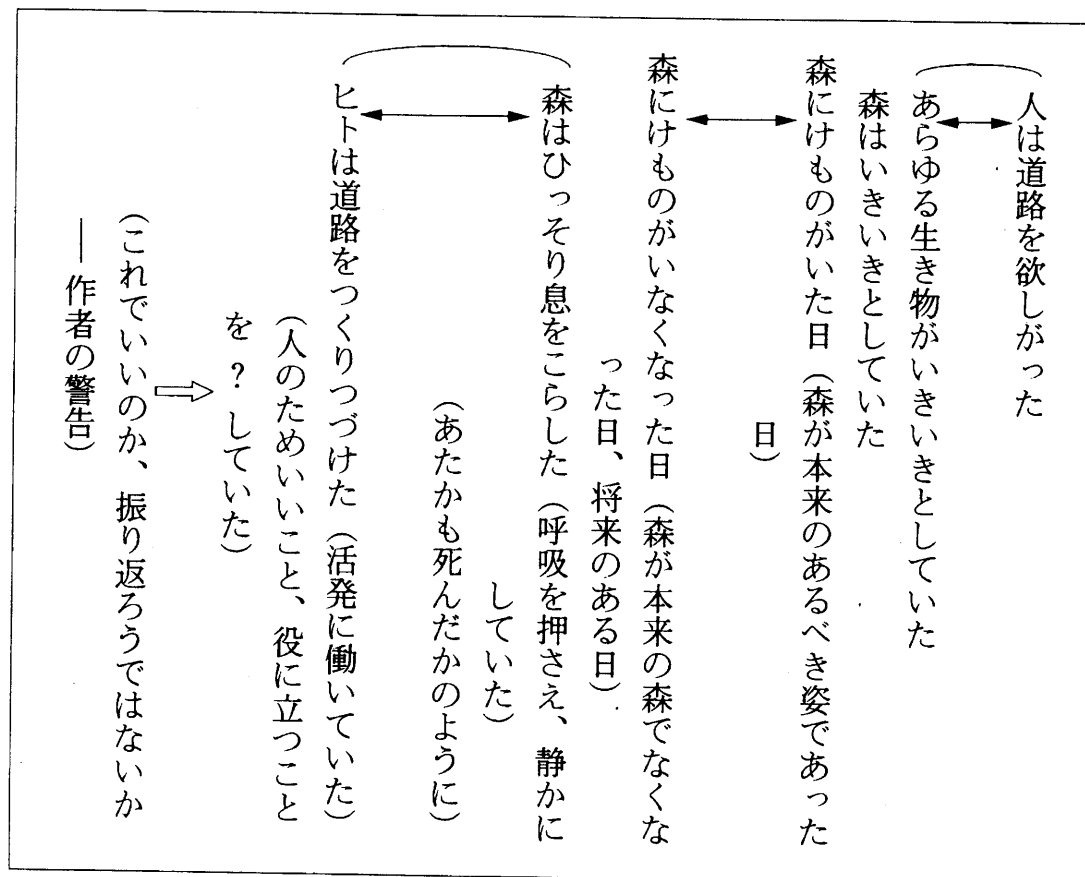 人は道路を欲しがった
あらゆる生き物がいきいきとしていた
森はいきいきとしていた
森にけものがいた日（森が本来のあるべき姿であった
日）
森にけものがいなくなった日（森が本来の森でなくな
った日、将来のある日）
森はひっそり息をこらした（呼吸を押さえ、静かに
していた）
（あたかも死んだかのように）
ヒトは道路をつくりつづけた（活発に働いていた）
（人のためいいこと、役に立つこと
を？していた）
（これでいいのか、振り返ろうではないか
――作者の警告）